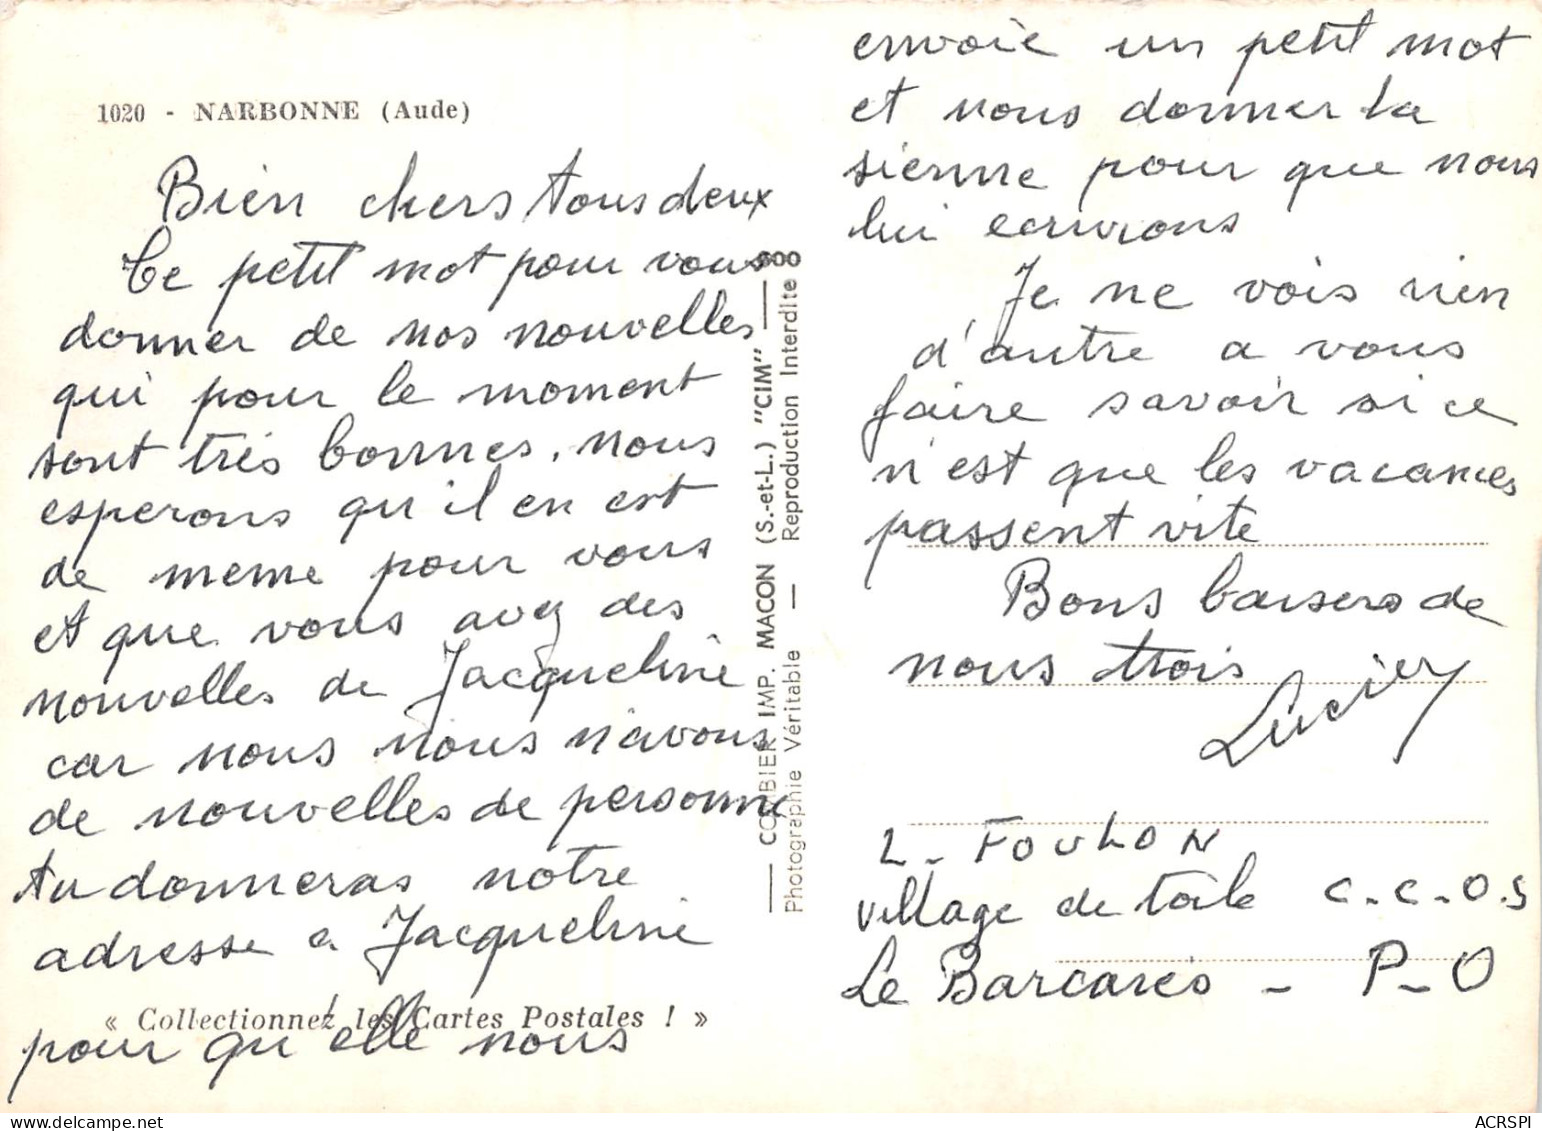 1020 - NARBONNE (Aude)
Bien chers tous deux
Ce petit mot pour vous
donner de nos nouvelles
qui pour le moment
sont très bonnes, nous
esperons qu'il en est
de meme pour vous
et que vous avez des
nouvelles de Jacqueline
car nous nous n'avons
de nouvelles de personne
tu donneras notre
adresse a Jacqueline
« Collectionnez les Cartes Postales ! »
pour qu'elle nous
COMBIER IMP. MACON (S.-et-L.) "CIM"
Photographie Véritable — Reproduction Interdite
envoie un petit mot
et nous donner la
sienne pour que nous
lui ecrivions
Je ne vois rien
d'autre a vous
faire savoir si ce
n'est que les vacances
passent vite
Bons baisers de
nous trois
Lucien
L. FOULON
village de toile C.C.O.S
Le Barcarès - P-O
ACRSPI